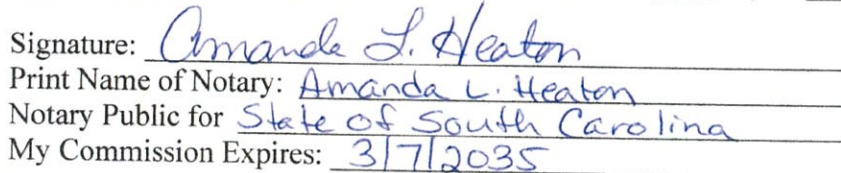 Signature: Amanda L. Heaton
Print Name of Notary: Amanda L. Heaton
Notary Public for State of South Carolina
My Commission Expires: 3/7/2035